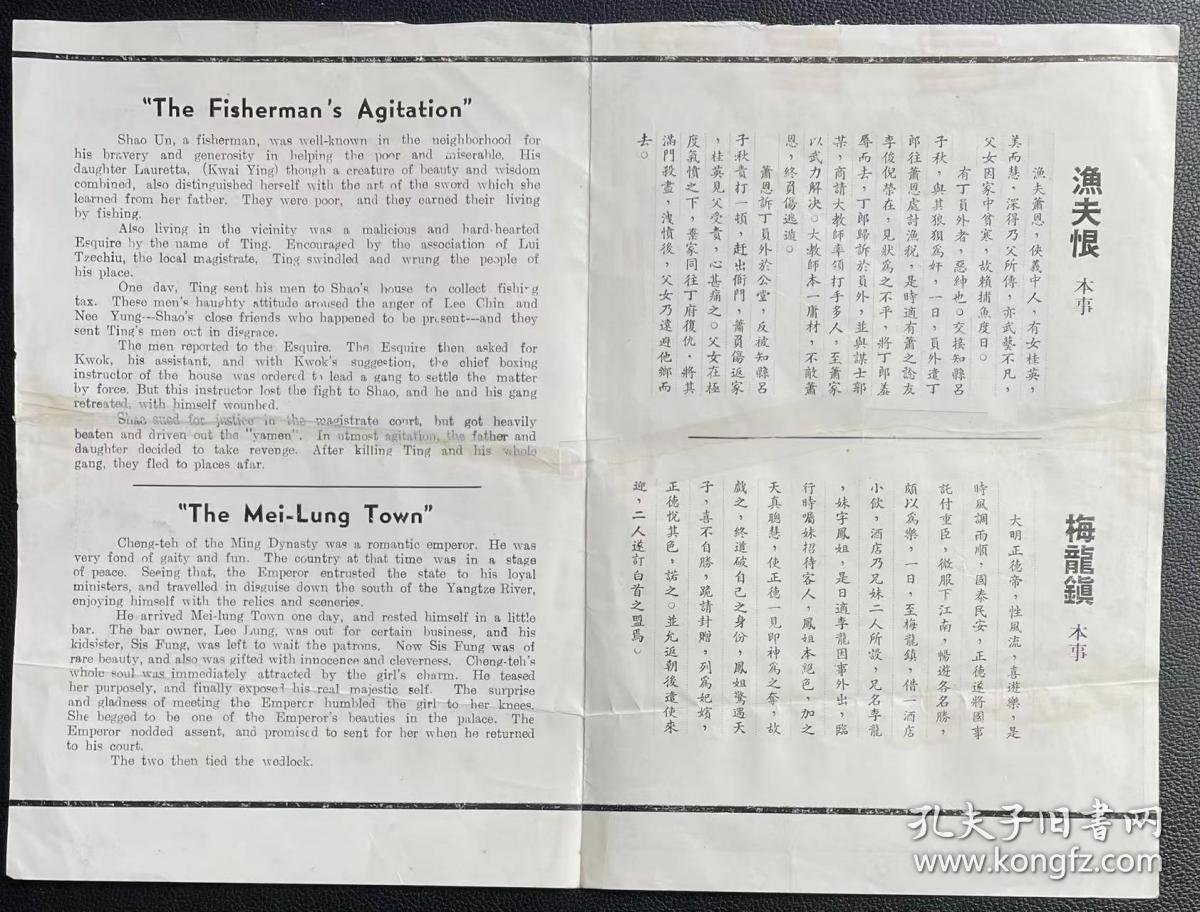 "The Fisherman's Agitation"
Shao Un, a fisherman, was well-known in the neighborhood for
his bravery and generosity in helping the poor and miserable. His
daughter Lauretta, (Kwai Ying) though a creature of beauty and wisdom
combined, also distinguished herself with the art of the sword which she
learned from her father. They were poor, and they earned their living
by fishing.
Also living in the vicinity was a malicious and hard-hearted
Esquire by the name of Ting. Encouraged by the association of Lui
Tzechiu, the local magistrate, Ting swindled and wrung the people of
his place.
One day, Ting sent his men to Shao's house to collect fishing
tax. These men's haughty attitude aroused the anger of Lee Chin and
Nee Yung---Shao's close friends who happened to be present---and they
sent Ting's men out in disgrace.
The men reported to the Esquire. The Esquire then asked for
Kwok, his assistant, and with Kwok's suggestion, the chief boxing
instructor of the house was ordered to lead a gang to settle the matter
by force. But this instructor lost the fight to Shao, and he and his gang
retreated, with himself wounbed.
Shao sued for justice in the magistrate court, but got heavily
beaten and driven out the "yamen". In utmost agitation, the father and
daughter decided to take revenge. After killing Ting and his whole
gang, they fled to places afar.
"The Mei-Lung Town"
Cheng-teh of the Ming Dynasty was a romantic emperor. He was
very fond of gaity and fun. The country at that time was in a stage
of peace. Seeing that, the Emperor entrusted the state to his loyal
ministers, and travelled in disguise down the south of the Yangtze River,
enjoying himself with the relics and sceneries.
He arrived Mei-lung Town one day, and rested himself in a little
bar. The bar owner, Lee Lung, was out for certain business, and his
kidsister, Sis Fung, was left to wait the patrons. Now Sis Fung was of
rare beauty, and also was gifted with innocence and cleverness. Cheng-teh's
whole soul was immediately attracted by the girl's charm. He teased
her purposely, and finally exposed his real majestic self. The surprise
and gladness of meeting the Emperor humbled the girl to her knees.
She begged to be one of the Emperor's beauties in the palace. The
Emperor nodded assent, and promised to sent for her when he returned
to his court.
The two then tied the wedlock.
漁夫恨 本事
漁夫蕭恩，俠義中人，有女桂英，
美而慧，深得乃父所傳，亦武藝不凡，
父女因家中貧寒，故賴捕魚度日。
有丁員外者，惡紳也。交接知縣呂
子秋，與其狼狽爲奸，一日，員外遣丁
郎往蕭恩處討漁稅，是時適有蕭之諗友
李俊倪榮在，見狀爲之不平，將丁郎羞
辱而去，丁郎歸訴於員外，並與謀士郭
某，商請大教師率領打手多人，至蕭家
以武力解决。大教師本一庸材，不敵蕭
恩，終負傷逃遁。
蕭恩訴丁員外於公堂，反被知縣呂
子秋責打一頓，赶出衙門，蕭負傷返家
，桂英見父受責，心甚痛之。父女在極
度氣憤之下，棄家同往丁府復仇，將其
滿門殺盡，洩憤後，父女乃遠避他鄉而
去。
梅龍鎮 本事
大明正德帝，性風流，喜遊樂，是
時風調雨順，國泰民安，正德遂將國事
託付重臣，微服下江南，暢遊各名勝，
頗以爲樂，一日，至梅龍鎮，借一酒店
小飲，酒店乃兄妹二人所設，兄名李龍
，妹字鳳姐，是日適李龍因事外出，臨
行時囑妹招待客人，鳳姐本絕色，加之
天真聰慧，使正德一見即神爲之奪，故
戲之，終道破自己之身份，鳳姐驚遇天
子，喜不自勝，跪請封贈，列爲妃嬪，
正德悅其色，諾之。並允返朝後遣使來
迎，二人遂訂白首之盟焉。
孔夫子旧书网
www.kongfz.com